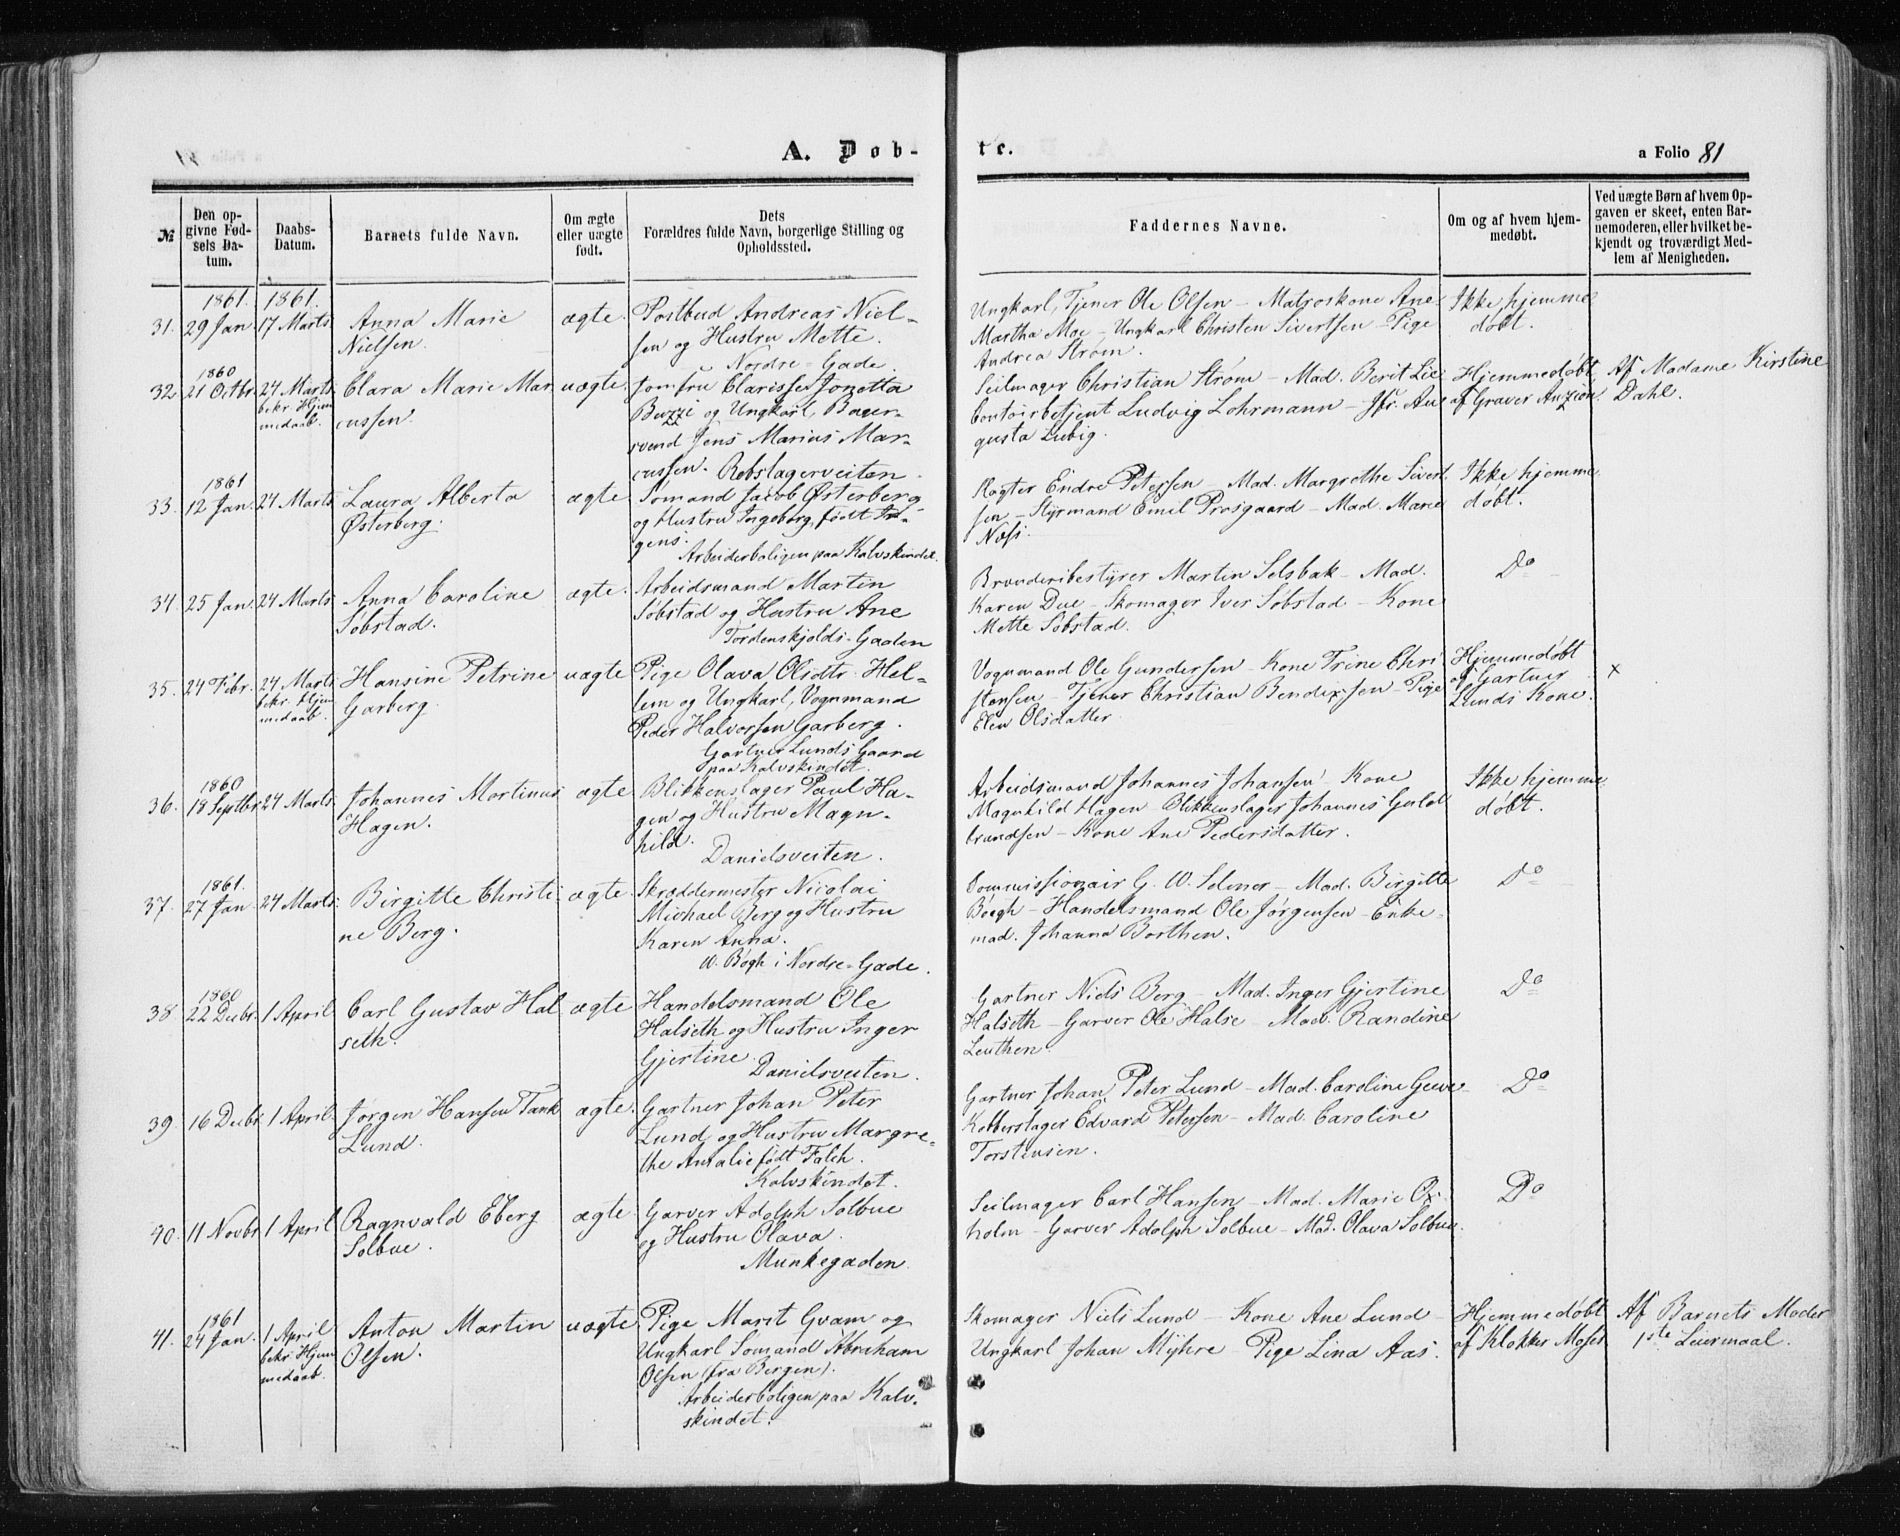 A. Døb-
te.
a Folio 81
№
Den op-
givne Fød-
sels Da-
tum.
Daabs-
Datum.
Barnets fulde Navn.
Om ægte
eller uægte
født.
Dets
Forældres fulde Navn, borgerlige Stilling og
Opholdssted.
Faddernes Navne.
Om og af hvem hjem-
medøbt.
Ved uægte Børn af hvem Op-
gaven er skeet, enten Bar-
nemoderen, eller hvilket be-
kjendt og troværdigt Med-
lem af Menigheden.
31.
1861.
29 Jan.
1861.
17 Marts
Anna Marie
Nielsen.
ægte.
Postbud Andreas Niel-
sen og Hustru Mette.
Nordre-Gade.
Ungkarl, Tjener Ole Olsen – Matroskone Ane
Martha Moe – Ungkarl Christen Sivertsen – Pige
Andrea Strøm.
Ikke hjemme
døbt.
32.
1860
21 Octbr.
24 Marts
bekr. Hjem
medaab.
Clara Marie Mar
cussen.
uægte.
Jomfru Clarisse Jonetta
Buzzi og Ungkarl, Bager-
svend Jens Marius Mar-
cussen. Rebslagerveiten.
Seilmager Christian Strøm – Mad. Berit Lie
Contoirbetjent Ludvig Lohrmann – Jfr. Au
gusta Lubig.
Hjemmedøbt
af Graver Anzion.
Af Madame Kirstine
Dahl.
33.
1861
12 Jan.
24 Marts
Laura Alberta
Østerberg.
ægte
Sømand Jacob Østerberg
og Hustru Ingeborg, født In-
gens.
Arbeiderboligen paa Kalvskindet.
Røgter Endre Petersen – Mad. Margrethe Sivert
sen – Styrmand Emil Prosgaard – Mad. Marie
Næss.
Ikke hjemme
døbt.
34.
25 Jan.
24 Marts
Anna Caroline
Søbstad.
ægte.
Arbeidsmand Martin
Søbstad og Hustru Ane
Tordenskjolds-Gaden
Brænderibestyrer Martin Selsbak – Mad.
Karen Due – Skomager Iver Søbstad – Kone
Mette Søbstad.
Do
35.
24 Febr.
24 Marts
bekr. Hjem
medaab.
Hansine Petrine
Garberg.
uægte
Pige Olava Olsdtr. Hel-
lem og Ungkarl, Vognmand
Peder Halvorsen Garberg.
Gartner Lunds Gaard
paa Kalvskindet.
Vognmand Ole Gundersen – Kone Trine Chri
stensen – Tjener Christian Bendixsen – Pige
Elen Olsdatter.
Hjemmedøbt
af Gartner
Lunds Kone.
×
36.
1860
18 Septbr.
24 Marts.
Johannes Martinus
Hagen.
ægte
Blikkenslager Paul Ha-
gen og Hustru Magn-
hild.
Danielsveiten.
Arbeidsmand Johannes Johansen – Kone
Magnhild Hagen – Blikkenslager Johannes Guld
brandsen – Kone Ane Pedersdatter.
Ikke hjemme
døbt.
37.
1861.
27 Jan.
24 Marts.
Birgitte Christi
ne Berg.
ægte.
Skræddermester Nicolai
Michael Berg og Hustru
Karen Anna.
W. Bøgh i Nordre-Gade.
Commissionair G. W. Selmer – Mad. Birgitte
Bøgh – Handelsmand Ole Jørgensen – Enke-
mad. Johanna Borthen.
Do
38
1860
22 Decbr.
1 April
Carl Gustav Hal
seth.
ægte
Handelsmand Ole
Halseth og Hustru Inger
Gjertine.
Danielsveiten.
Gartner Niels Berg – Mad. Inger Gjertine
Halseth – Garver Ole Halse – Mad. Randine
Leuthen.
Do
39.
16 Decbr.
1 April.
Jørgen Hansen Tank
Lund.
ægte.
Gartner Johan Peter
Lund og Hustru Margre-
the Amalie født Falch.
Kalvskindet.
Gartner Johan Peter Lund – Mad. Caroline Greve
Kobberslager Edvard Petersen – Mad. Caroline
Torstensen.
Do
40.
11 Novbr.
1 April
Ragnvald Eberg
Solbue.
ægte.
Garver Adolph Solbue
og Hustru Olava.
Munkegaden.
Seilmager Carl Hansen – Mad. Marie Ox-
holm – Garver Adolph Solbue – Mad. Olava Solbue.
Do
41.
1861
24 Jan.
1 April
bekr. Hjem
medaab.
Anton Martin
Olsen.
uægte.
Pige Marit Gvam og
Ungkarl Sømand Abraham
Olsen (fra Bergen).
Arbeiderboligen paa Kalv-
skindet.
Skomager Niels Lund – Kone Ane Lund –
Ungkarl Johan Myhre – Pige Lina Aas.
Hjemmedøbt
af Klokker Moses
Af Barnets Moder
1ste Leiermaal.